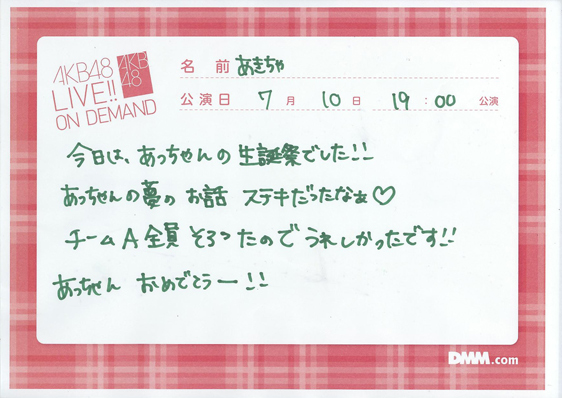 AKB48
LIVE!!
ON DEMAND
AKB
48
名 前 あきちゃ
公演日 7 月 10 日 19 : 00 公演
今日は、あっちゃんの 生誕祭でした!!
あっちゃんの夢の お話 ステキだったなぁ♡
チームA 全員 そろったので うれしかったです!!
あっちゃん おめでとうー!!
DMM.com